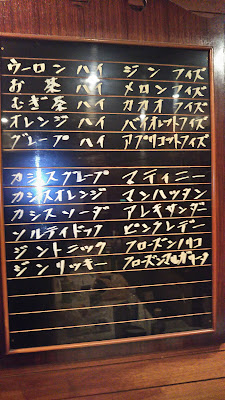 ウーロン ハイ ジン フィズ
お茶 ハイ メロン フィズ
むぎ茶 ハイ カカオ フィズ
オレンジ ハイ バイオレットフィズ
グレープ ハイ アプリコットフィズ
カシスグレープ マティニー
カシスオレンジ マンハッタン
カシスソーダ アレキサンダー
ソルティドック ピンクレデー
ジントニック フローズンバカルディ
ジンリッキー フローズンマルガリータ